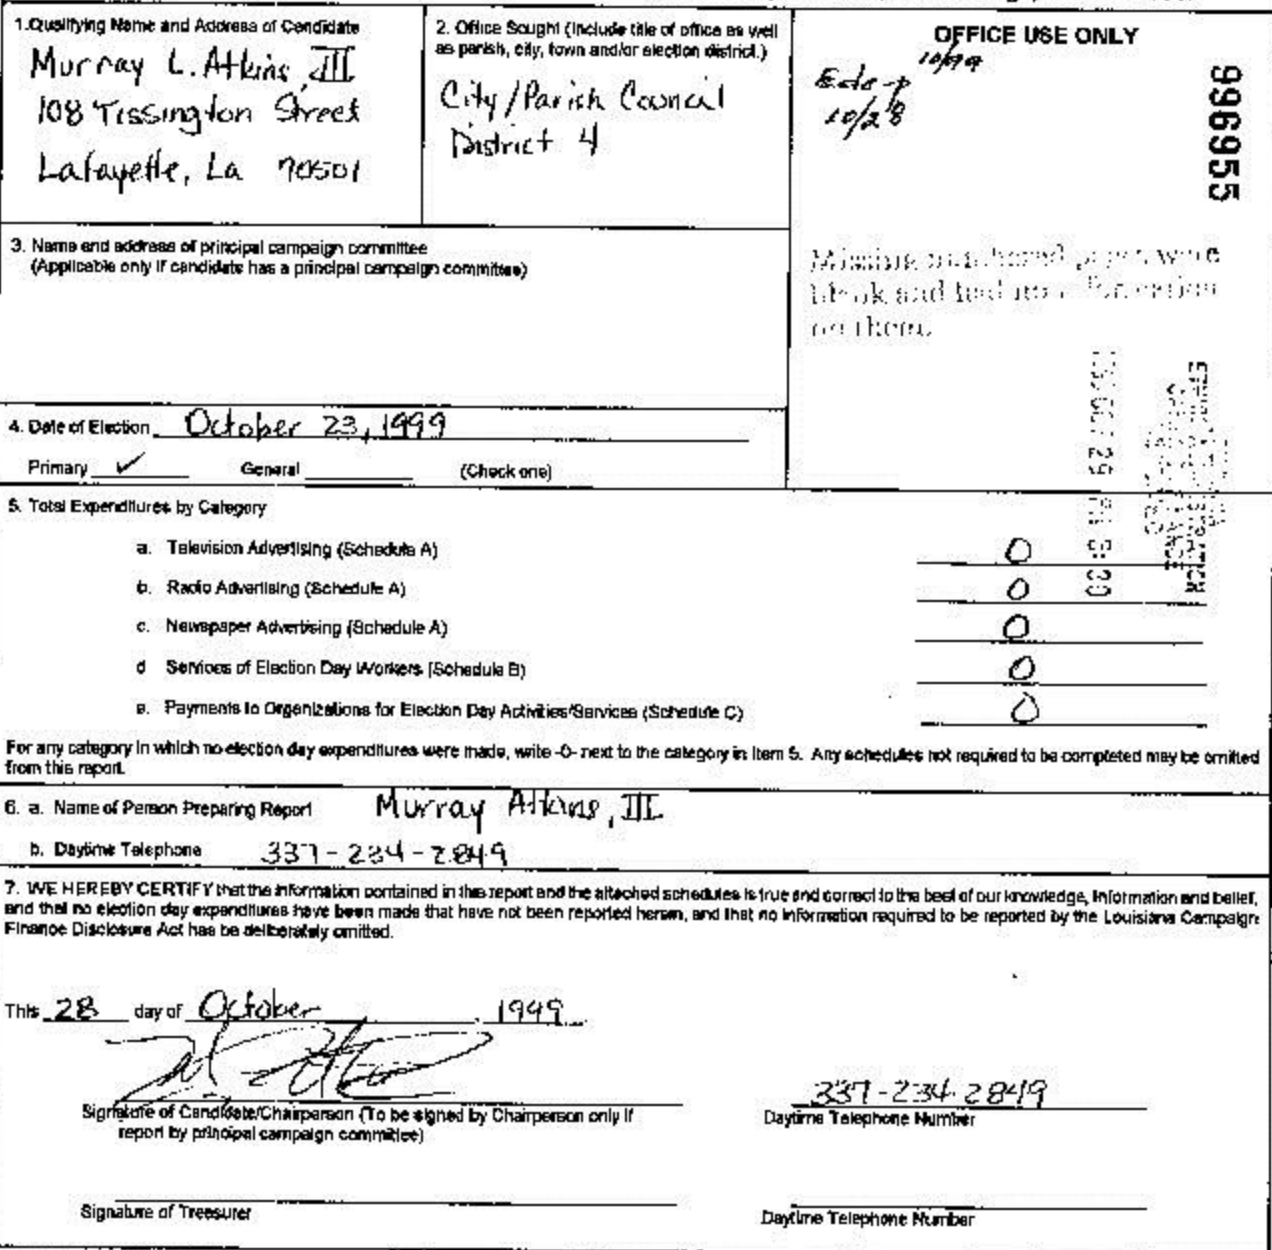 1.Qualifying Name and Address of Candidate
Murray L. Atkins, III
108 Tissington Street
Lafayette, La 70501
2. Office Sought (Include title of office as well
as parish, city, town and/or election district.)
City/Parish Council
District 4
OFFICE USE ONLY
10/99
10/28
996955
3. Name and address of principal campaign committee
(Applicable only if candidate has a principal campaign committee)
Missing numbered pages were
blank and had no information
on them.
4. Date of Election October 23, 1999
Primary ✓ General (Check one)
5. Total Expenditures by Category
a. Television Advertising (Schedule A) 0
b. Radio Advertising (Schedule A) 0
c. Newspaper Advertising (Schedule A) 0
d Services of Election Day Workers (Schedule B) 0
e. Payments to Organizations for Election Day Activities/Services (Schedule C) 0
For any category in which no election day expenditures were made, write -0- next to the category in Item 5. Any schedules not required to be completed may be omitted
from this report.
6. a. Name of Person Preparing Report Murray Atkins, III
b. Daytime Telephone 337-234-2849
7. WE HEREBY CERTIFY that the information contained in this report and the attached schedules is true and correct to the best of our knowledge, information and belief,
and that no election day expenditures have been made that have not been reported herein, and that no information required to be reported by the Louisiana Campaign
Finance Disclosure Act has be deliberately omitted.
This 28 day of October, 1999
337-234-2849
Signature of Candidate/Chairperson (To be signed by Chairperson only if
report by principal campaign committee)
Daytime Telephone Number
Signature of Treasurer
Daytime Telephone Number